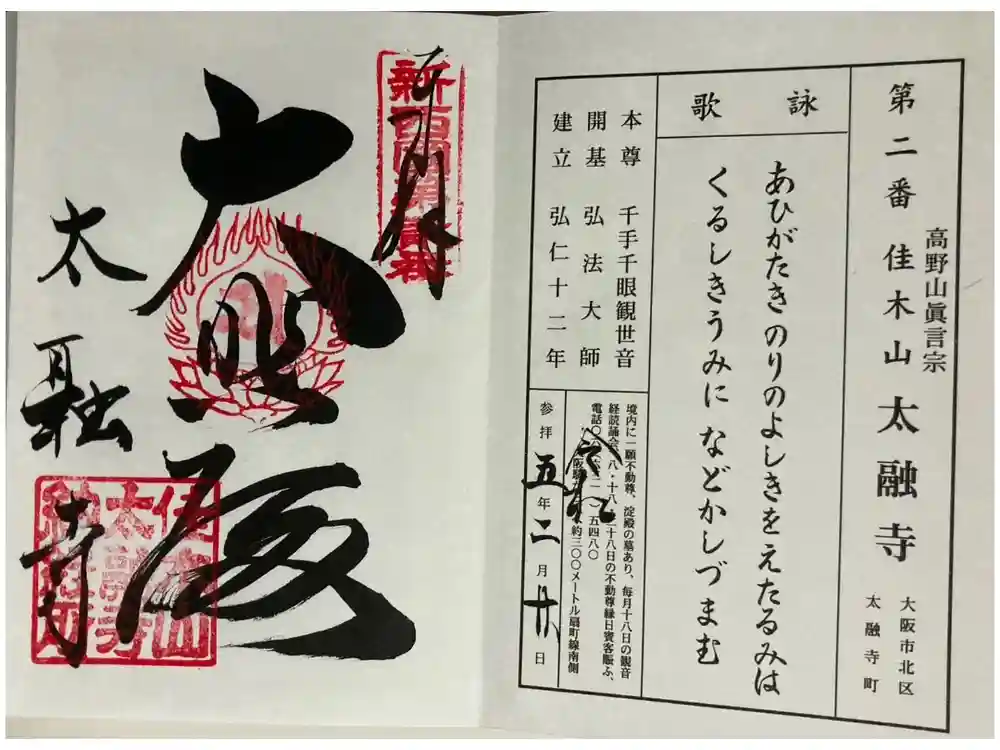 第二番 佳木山 太融寺
高野山眞言宗
大阪市北区
太融寺町
詠歌
あひがたきのりのよしきをえたるみは
くるしきうみになどかしづまむ
本尊 千手千眼観世音
開基 弘法大師
建立 弘仁十二年
境内に一願不動尊、淀殿の墓あり、毎月十八日の観音
経読誦会、八・十八・二十八日の不動尊縁日賽客賑ふ、
五四八〇
約三〇〇メートル扇町線南側
参拝 五年二月廿八日
奉拝
大悲殿
太融寺